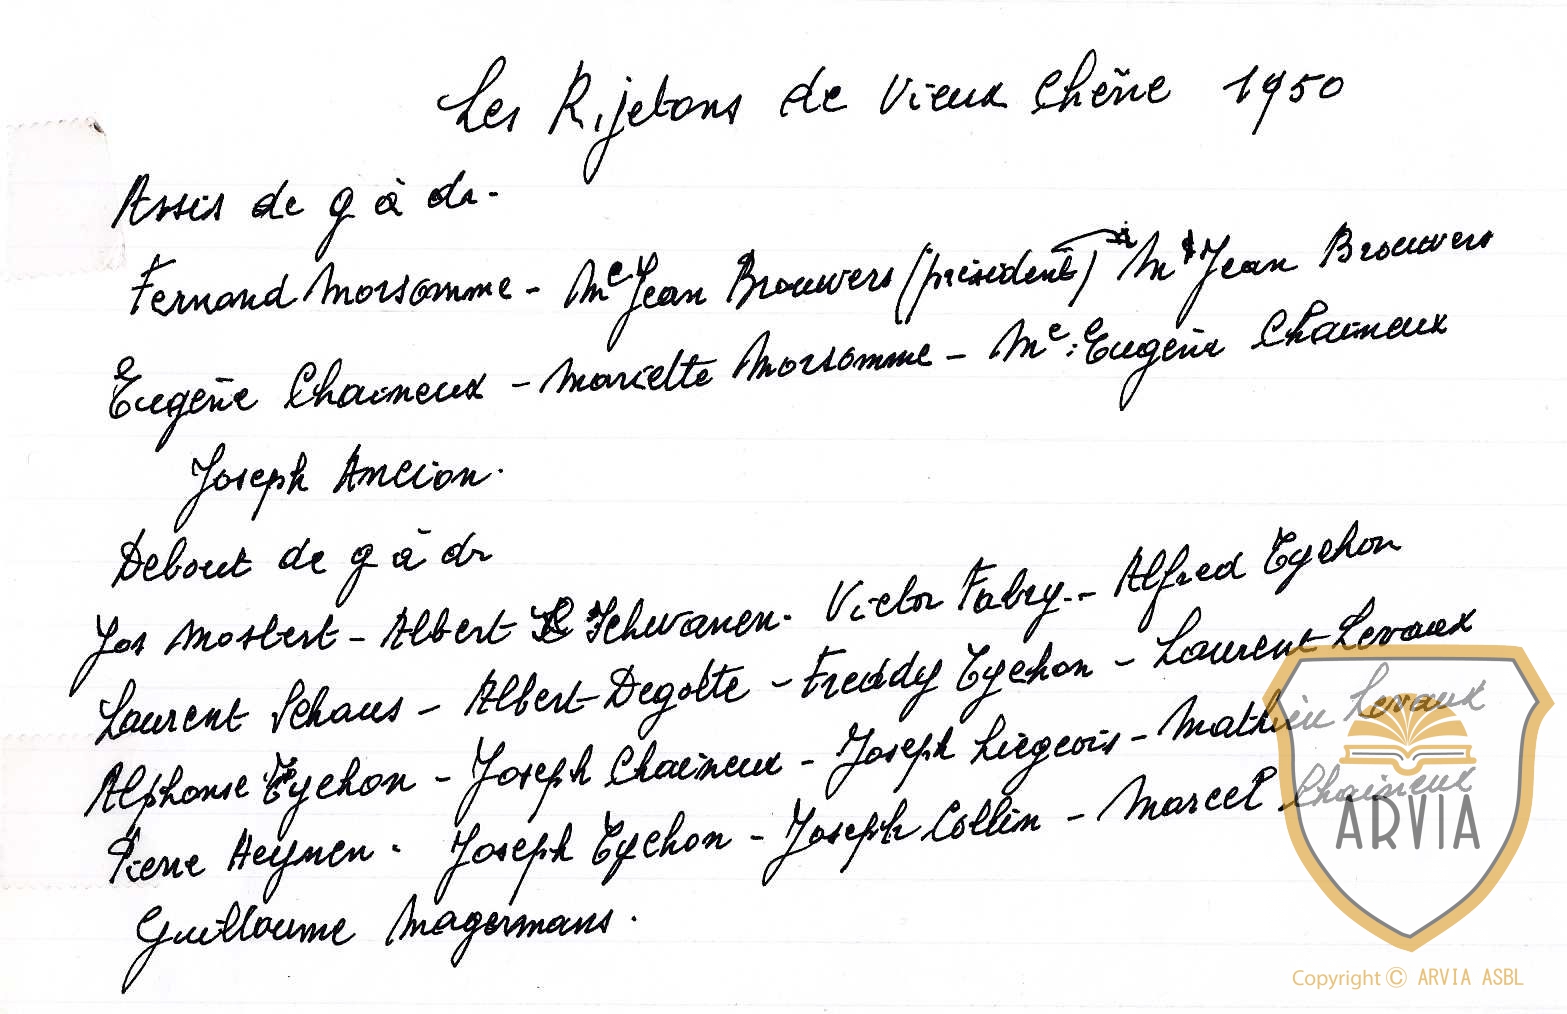 Les Rijetons de Vieux Chêne 1950
Assis de g à dr.
Fernand Morsomme - Me Jean Brouwers (président) Mr Jean Brouwers
Eugène Chaineux - Marielte Morsomme - Me: Eugène Chaineux
Joseph Ancion.
Debout de g à dr
Jos Mostert - Albert Schwanen. Victor Fabry.- Alfred Tychon
Laurent Schaus - Albert Degotte - Freddy Tychon - Laurent Levaux
Alphonse Tychon - Joseph Chaineux - Joseph Liégeois - Mathieu Levaux
Pierre Heynen. Joseph Tychon - Joseph Collin - Marcel Chaineux
Guillaume Magermans.
ARVIA
Copyright © ARVIA ASBL